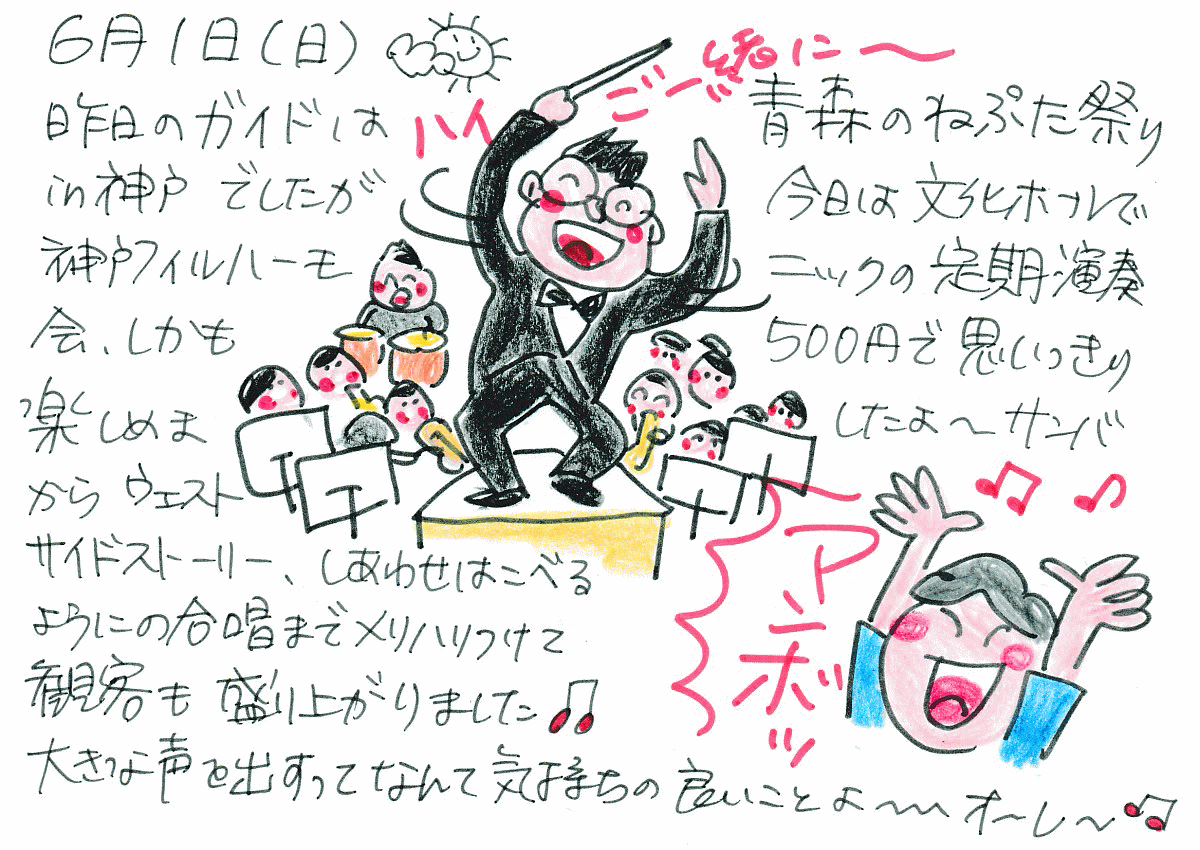 6月1日(日)
ハイ ご一緒に〜
昨日のガイドは 青森のねぷた祭り
in神戸 でしたが 今日は文化ホールで
神戸フィルハーモ ニックの定期演奏
会、しかも 500円で思いっきり
楽しめま したよ〜サンバ
から ウェスト
サイドストーリー、しあわせはこべる
ようにの合唱までメリハリつけて
観客も盛り上がりました♫
大きな声を出すってなんて気持ちの良いことよ〜〜 オ〜レ〜♫
アンボッ